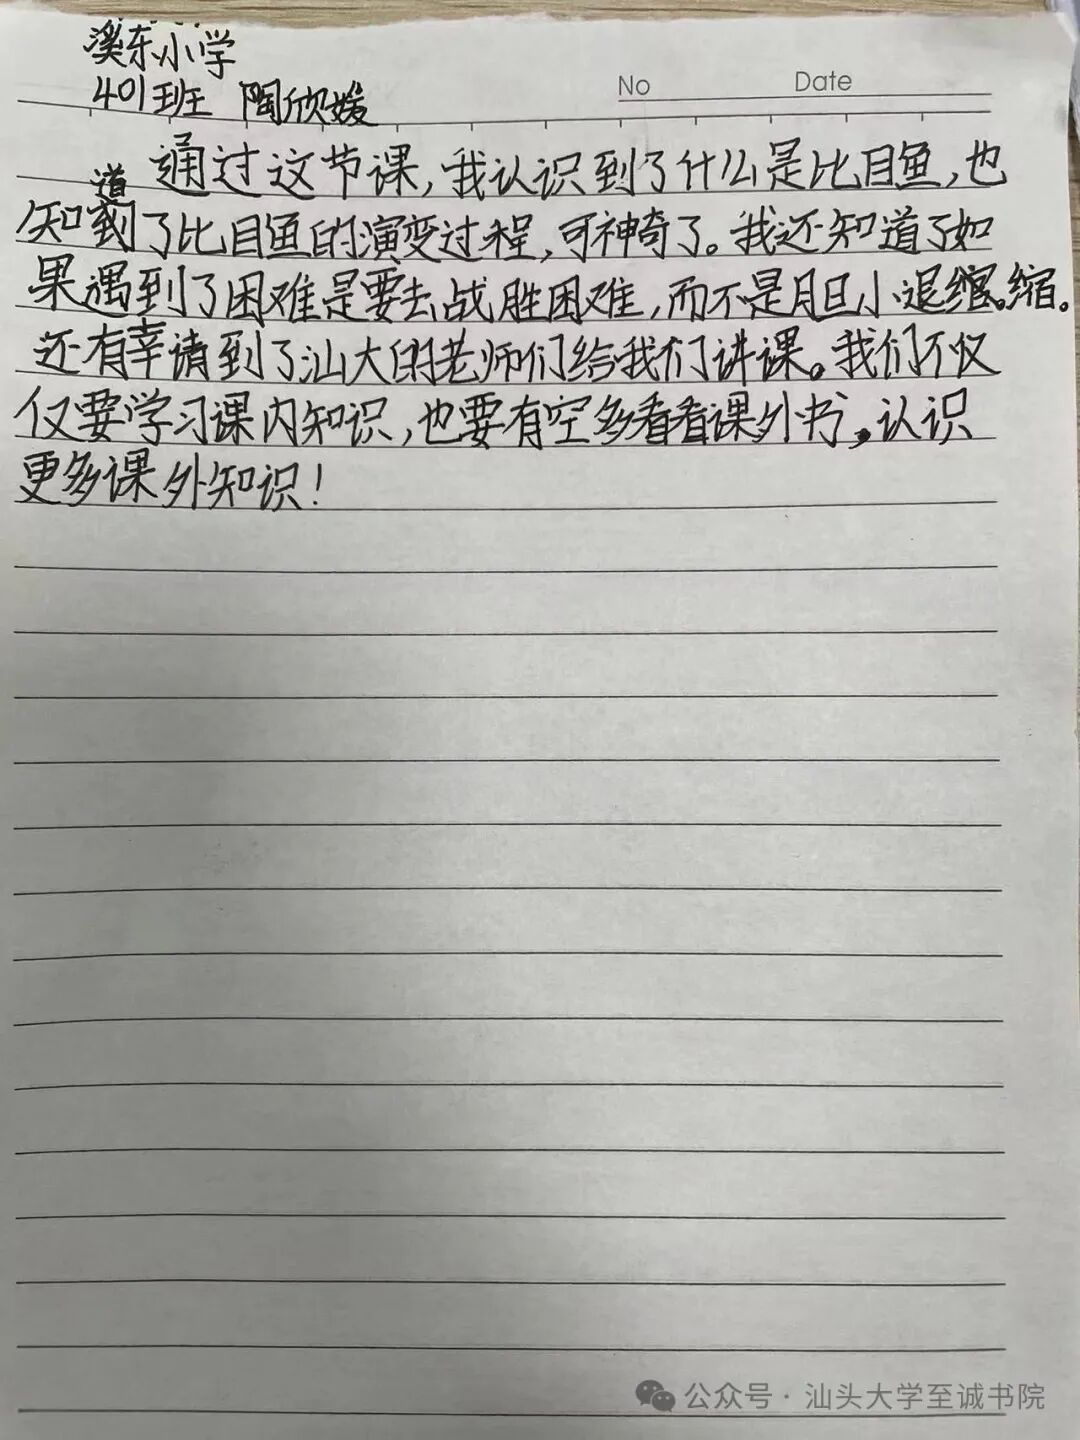 溪东小学
401班 陶欣媛
No Date
通过这节课,我认识到了什么是比目鱼,也
知道了比目鱼的演变过程,可神奇了。我还知道了如
果遇到了困难是要去战胜困难,而不是胆小退缩。
还有幸请到了汕大的老师们给我们讲课。我们不仅
仅要学习课内知识,也要有空多看看课外书,认识
更多课外知识!
公众号·汕头大学至诚书院